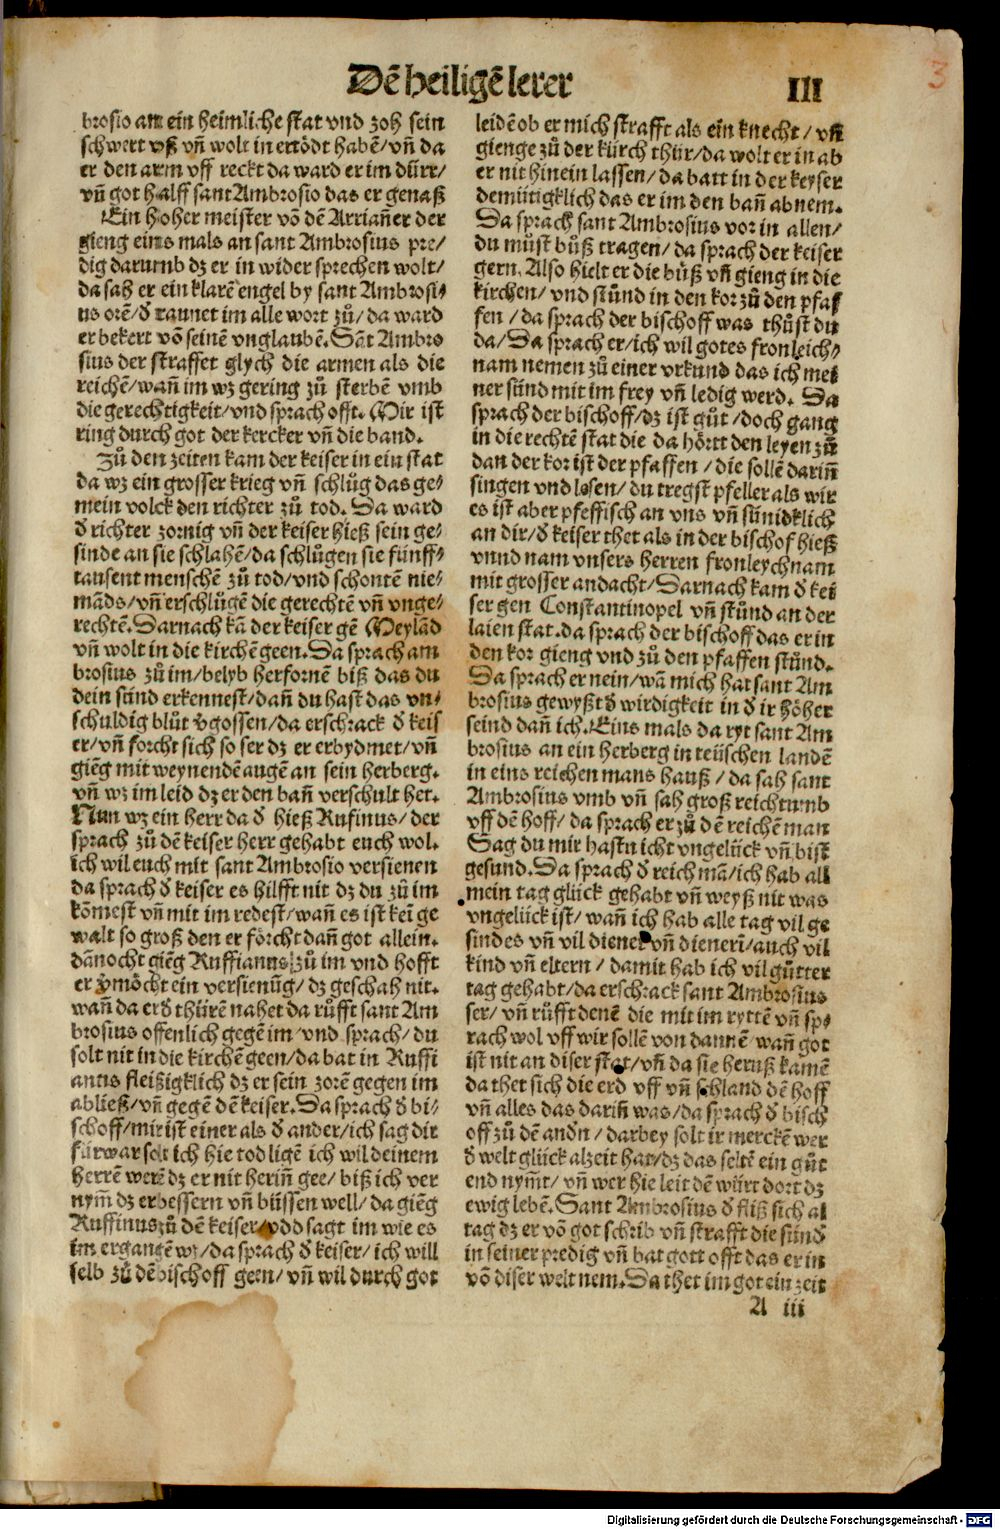 Dē heiligē lerer
III
3
brosio an ein heimliche stat vnd zoh sein
schwert vß vñ wolt in ertödt habē/vñ da
er den arm vff reckt da ward er im dürr/
vñ got halff sant Ambrosio das er genaß
Ein hoher meister vō dē Arriañer der
gieng eins mals an sant Ambrosius pre/
dig darumb dz er in wider sprechen wolt/
da sah er ein klarē engel by sant Ambrosi⸗
us orē/đ raunet im alle wort zů/da ward
er bekert vō seinē vnglaubē. Sāt Ambro
sius der straffet glych die armen als die
reichē/wañ im wz gering zů sterbē vmb
die gerechtigkeit/vnd sprach offt. Mir ist
ring durch got der kercker vñ die band.
Zů den zeiten kam der keiser in ein stat
da wz ein grosser krieg vñ schlůg das ge⸗
mein volck den richter zů tod. Da ward
đ richter zornig vñ der keiser hieß sein ge⸗
sinde an sie schlahē/da schlůgen sie fünff⸗
tausent menschē zů tod/vnd schontē nie⸗
māds/vñ erschlůgē die gerechtē vñ vnge⸗
rechtē. Darnach kā der keiser gē Meylād
vñ wolt in die kirchē geen. Da sprach am
brosius zů im/belyb herfornē biß das du
dein sünd erkennest/dañ du hast das vn⸗
schuldig blůt v̉gossen/da erschrack đ keis
er/vñ forcht sich so ser dz er erbydmet/vñ
giēg mit weynendē augē an sein herberg.
vñ wz im leid dz er den bañ verschult het.
Nun wz ein herr da đ hieß Rufinus/der
sprach zů dē keiser herr gehabt euch wol.
ich wil euch mit sant Ambrosio versienen
da sprach đ keiser es hilfft nit dz du zů im
kōmest vñ mit im redest/wañ es ist keī ge
walt so groß den er förcht dañ got allein.
dānocht giēg Ruffianus zů im vnd hofft
er v̉möcht ein versienūg/dz geschah nit.
wañ da er đ thürē nahet da růfft sant Am
brosius offenlich gegē im/vnd sprach/du
solt nit in die kirchē geen/da bat in Ruffi
anus fleißigklich dz er sein zorē gegen im
abließ/vñ gegē dē keiser. Da sprach đ bi⸗
schoff/mir ist einer als đ ander/ich sag dir
fürwar solt ich hie tod ligē ich wil deinem
herrē werē dz er nit heriñ gee/biß ich ver
nym̄ dz er bessern vñ büssen well/da giēg
Ruffinus zů dē keiser vnd sagt im wie es
im ergangē wz/da sprach đ keiser/ich will
selb zů dē bischoff geen/vñ wil durch got
leidē ob er mich strafft als ein knecht/vñ
gienge zů der kürch thür/da wolt er in ab
er nit hinein lassen/da batt in der keyser
demütigklich das er im den bañ abnem.
Da sprach sant Ambrosius vor in allen/
du můst bůß tragen/da sprach der keiser
gern. Also hielt er die bůß vñ gieng in die
kirchen/vnd stůnd in den kor zů den pfaf
fen/da sprach der bischoff was thůst du
da/Da sprach er/ich wil gotes fronleich⸗
nam nemen zů einer vrkund das ich mei
ner sünd mit im frey vñ ledig werd. Da
sprach der bischoff/dz ist gůt/doch gang
in die rechtē stat die da hörtt den leyen zů
dan der kor ist der pfaffen/die sollē dariñ
singen vnd lesen/du tregst pfeller als wir
es ist aber pfeffisch an vns vñ sünidklich
an dir/đ keiser thet als in der bischof hieß
vnnd nam vnsers herren fronleychnam
mit grosser andacht/Darnach kam đ kei
ser gen Constantinopel vñ stůnd an der
laien stat. da sprach der bischoff das er in
den kor gieng vnd zů den pfaffen stůnd.
Da sprach er nein/wā mich hat sant Am
brosius gewyßt đ wirdigkeit in đ ir höher
seind dañ ich. Eins mals da ryt sant Am
brosius an ein herberg in teüschen landē
in eins reichen mans hauß/da sah sant
Ambrosius vmb vñ sah groß reichtumb
vff dē hoff/da sprach er zů dē reichē man
Sag du mir hastu icht vngelück vñ bist
gesund. Da sprach đ reich mā/ich hab all
mein tag glück gehabt vñ weyß nit was
vngelück ist/wañ ich hab alle tag vil ge
sindes vñ vil diener vñ dienerī/auch vil
kind vñ eltern/damit hab ich vil gůtter
tag gehabt/da erschrack sant Ambrosius
ser/vñ růfft denē die mit im ryttē vñ sp⸗
rach wol vff wir sollē von dannē wañ got
ist nit an diser stat/vñ da sie heruß kamē
da thet sich die erd vff vñ schland dē hoff
vñ alles das dariñ was/da sprach đ bisch
off zů dē anđn/darbey solt ir merckē wer
đ welt glück alzeit hat/dz das seltē ein gůt
end nym̄t/vñ wer hie leit dē würt dort dz
ewig lebē. Sant Ambrosius đ fliß sich al
tag dz er vō got schrib vñ strafft die sünđ
in seiner predig vñ bat gott offt das er in
vō diser welt nem. Da thet im got ein zeit
A iii
Digitalisierung gefördert durch die Deutsche Forschungsgemeinschaft - DFG